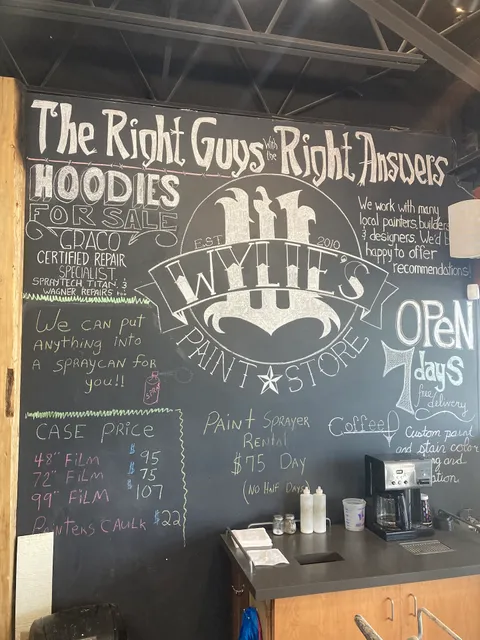 The Right Guys with the Right Answers
HOODIES
FOR SALE
GRACO
CERTIFIED REPAIR
SPECIALIST,
SPRAYTECH, TITAN, &
WAGNER REPAIRS!!
W
EST. 2019
WYLIE'S
PAINT STORE
We work with many
local painters, builders
& designers. We'd b
happy to offer
recommendations
OPEN
7 days
free
delivery
We can put
anything into
a spraycan for
you!!
CASE PRICE
48" FILM $95
72" FILM $75
99" FILM $107
Painters Caulk $22
Paint Sprayer
Rental
$75 Day
(No Half Days
Coffee!
Custom paint
and stain color